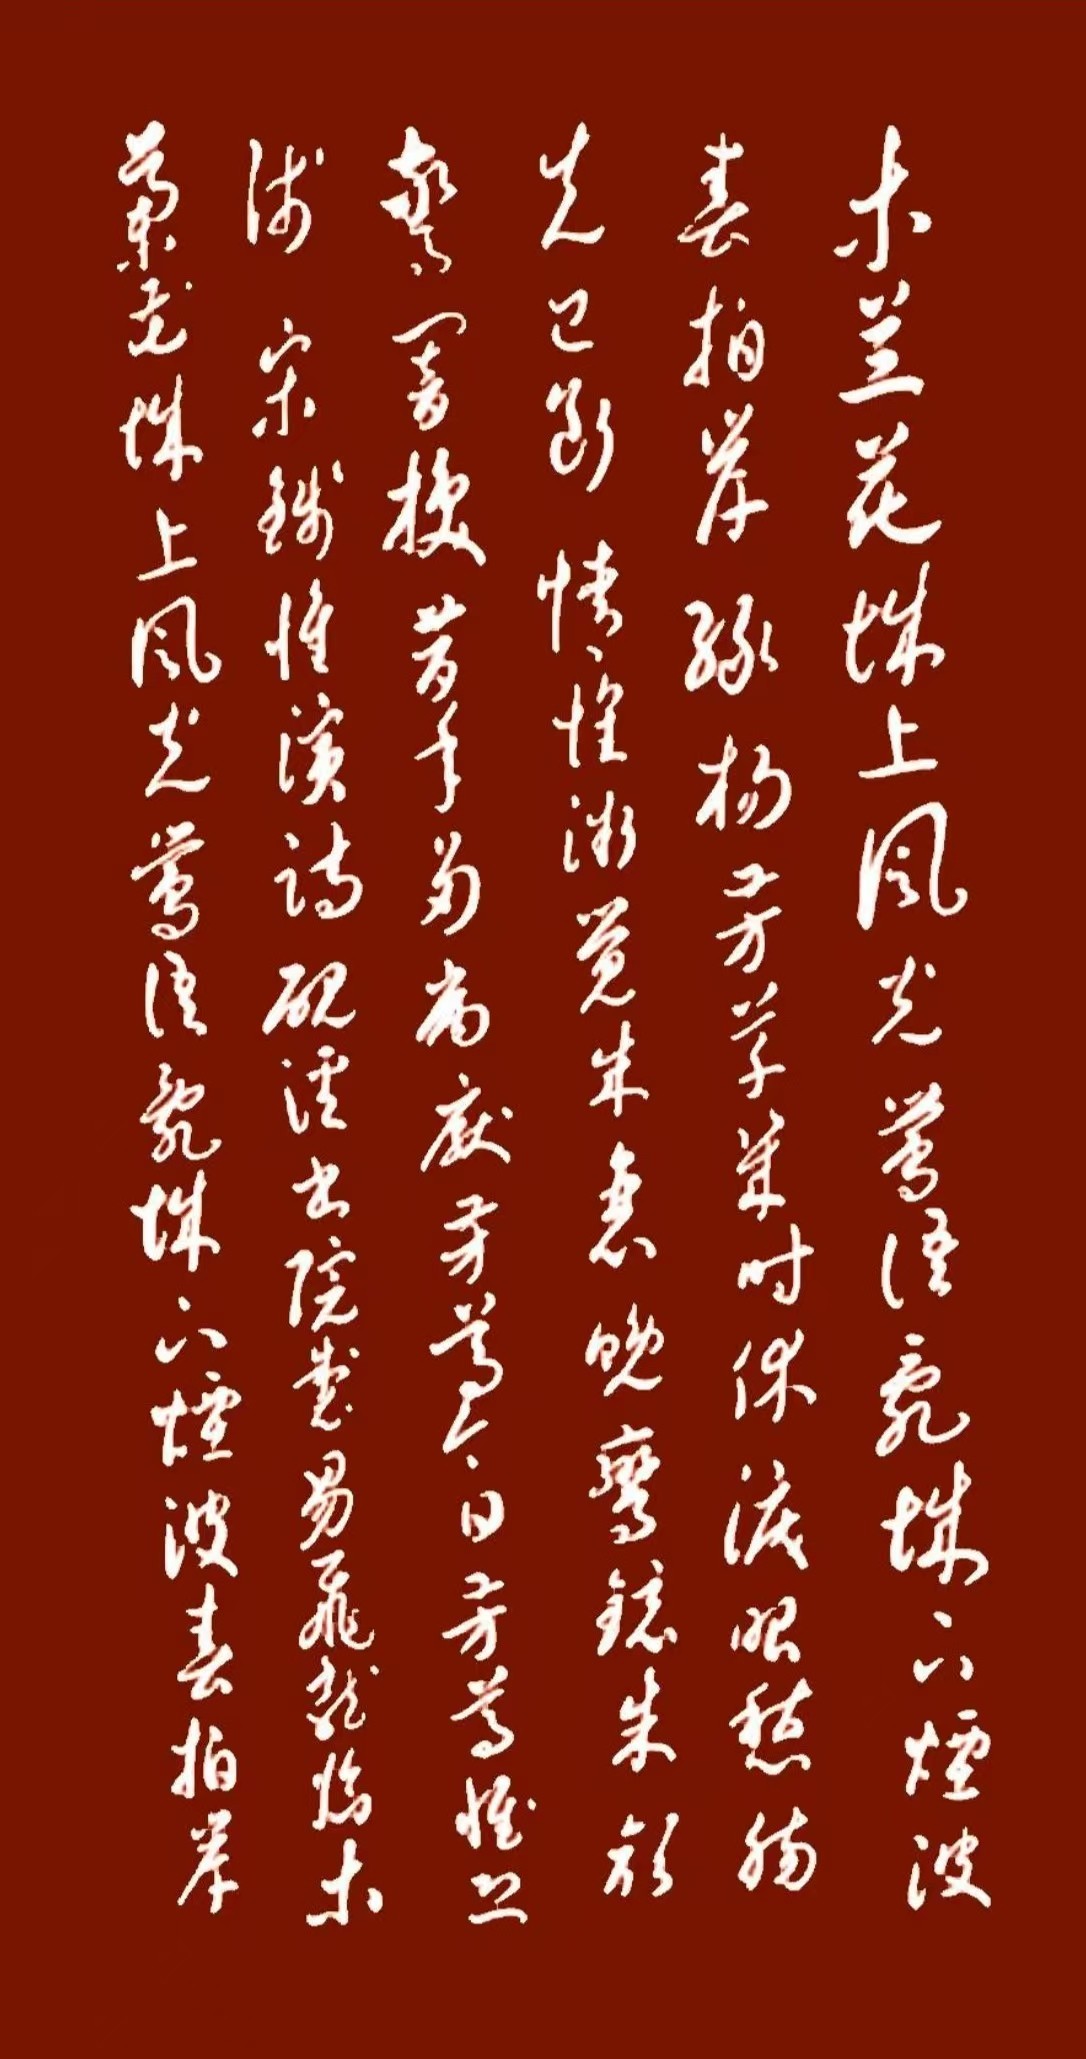 木兰花城上风光莺语乱城下煙波
春拍岸绿杨芳草几时休泪眼愁肠
先已断情怀渐觉成衰晚鸾镜朱颜
惊暗换昔年多病厌芳尊今日芳尊惟恐
浅 宋钱惟演诗砚溪书院易飞龙木
蘭花城上风光莺语乱城下煙波春拍岸